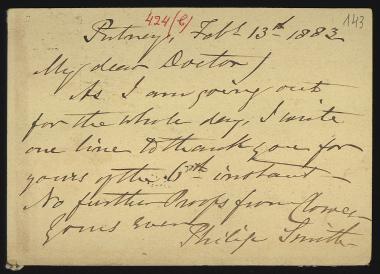 424(e)
143
Putney, Feb. 13th 1883
My dear Doctor,
As I am going out
for the whole day, I write
one line to thank you for
yours of the 6th instant
No further Proofs from Clowes
Yours ever
Philip Smith